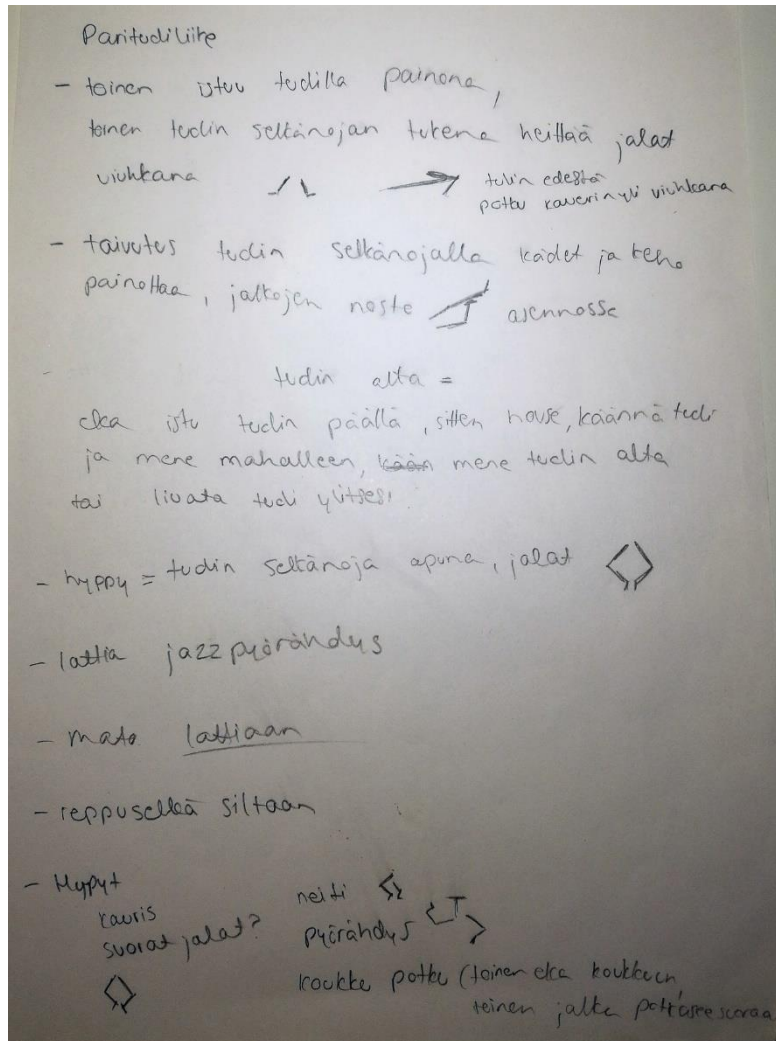 Parituoliliike
- toinen istuu tuolilla painona,
toinen tuolin selkänojan tukena heittää jalat
viuhkana
tulin edestä
potku kaverin yli viuhkana
- taivutus tuolin selkänojalla kädet ja keho
painottaa, jalkojen noste asennossa
tuolin alta =
eka istu tuolin päällä, sitten nouse, käännä tuoli
ja mene mahalleen, kään mene tuolin alta
tai liuata tuoli ylitsesi
- hyppy = tuolin selkänoja apuna, jalat
- lattia jazzpyörähdys
- mato lattiaan
- reppuselkä siltaan
- Hypyt
kauris
suorat jalat?
neiti
pyörähdys
koukku potku (toinen eka koukkuun,
toinen jalka potkaisee suoraa